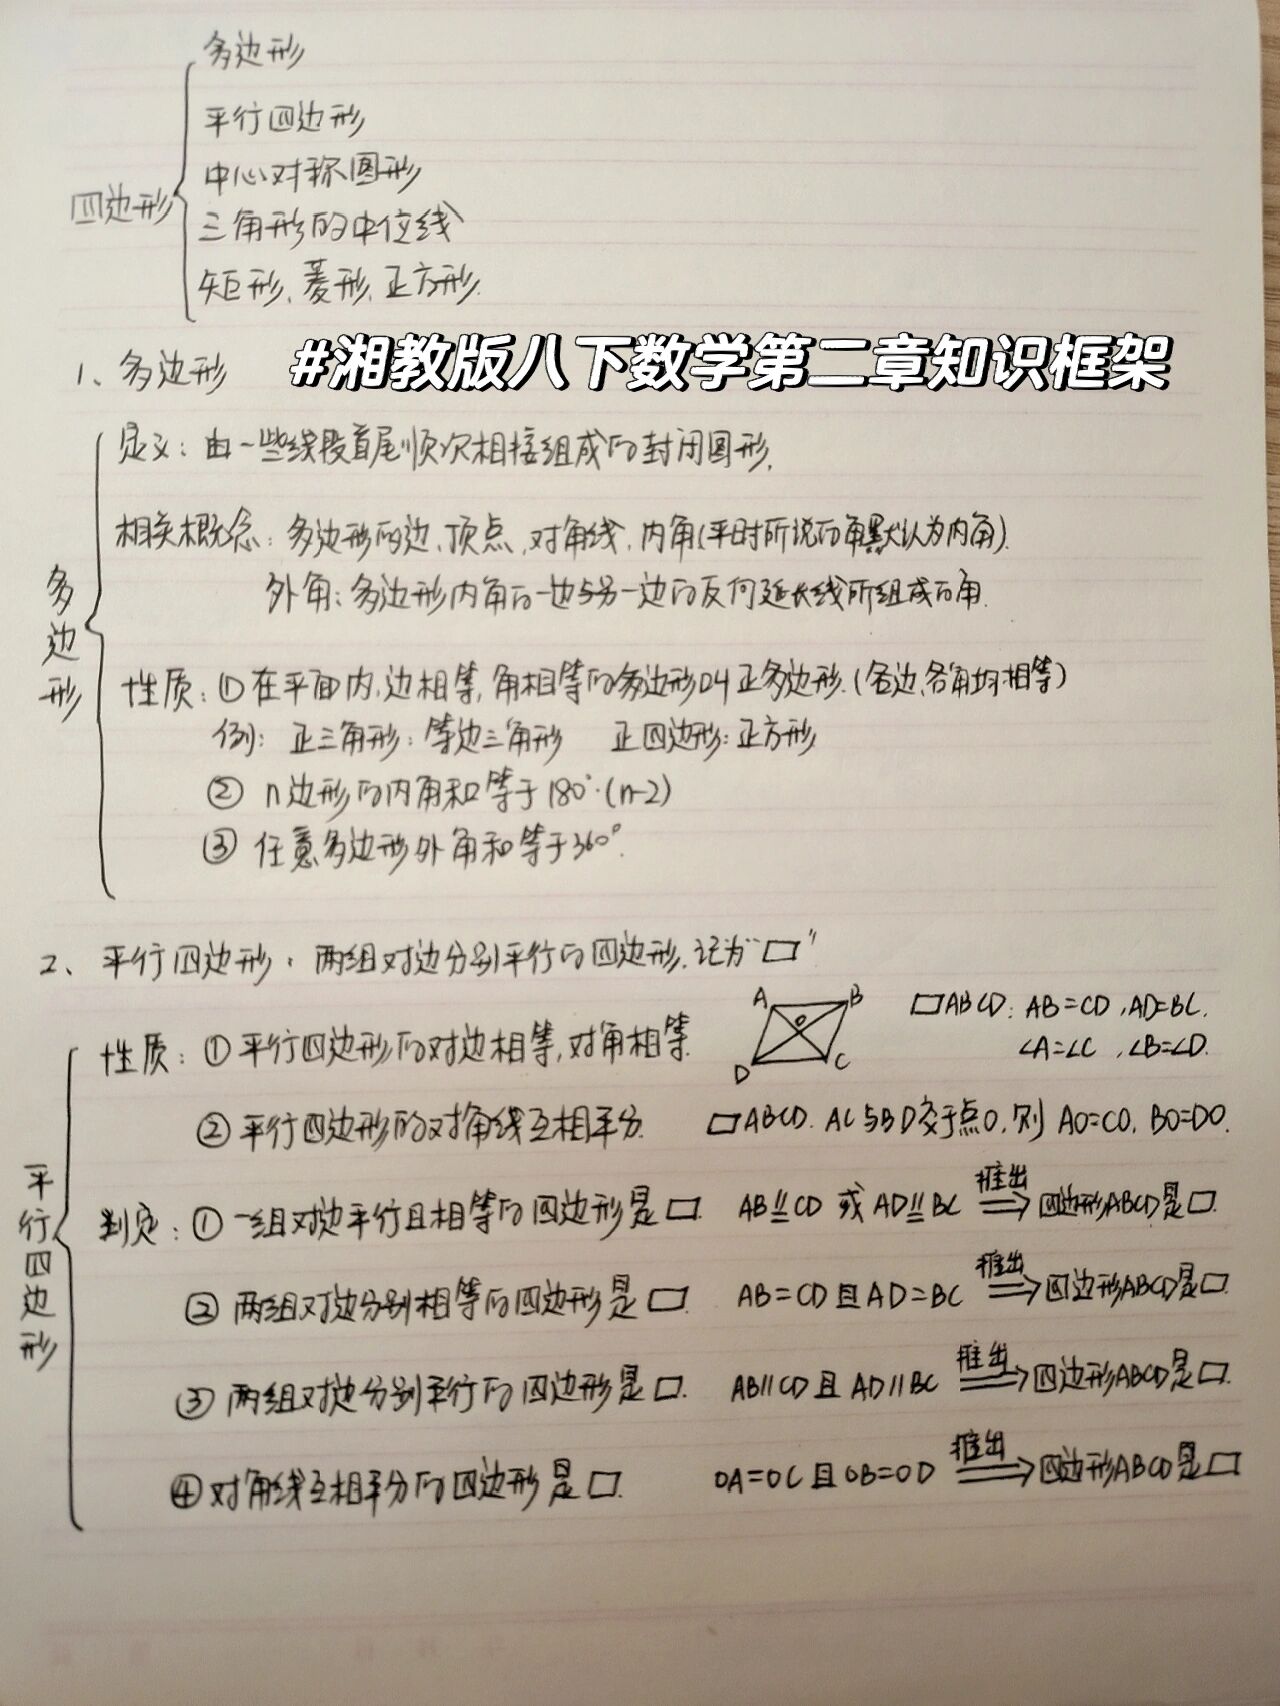 多边形
平行四边形
中心对称图形
四边形
三角形的中位线
矩形、菱形、正方形.
#湘教版八下数学第二章知识框架
1、多边形
定义：由一些线段首尾顺次相接组成的封闭图形.
相关概念：多边形的边、顶点、对角线、内角(平时所说的角默认为内角).
外角：多边形内角的一边与另一边的反向延长线所组成的角.
多边形
性质：①在平面内,边相等,角相等的多边形叫正多边形.(各边、各角均相等)
例：正三角形：等边三角形 正四边形：正方形
② n边形的内角和等于180°·(n-2)
③ 任意多边形外角和等于360°.
2、平行四边形：两组对边分别平行的四边形.记为“▱”
A B
O
D C
▱ABCD：AB=CD,AD=BC.
∠A=∠C,∠B=∠D.
性质：①平行四边形的对边相等,对角相等.
②平行四边形的对角线互相平分. ▱ABCD.AC与BD交于点O,则AO=CO,BO=DO.
平行四边形
判定：①一组对边平行且相等的四边形是▱. AB⫽CD 或 AD⫽BC 推出⟹四边形ABCD是▱.
②两组对边分别相等的四边形是▱. AB=CD且AD=BC 推出⟹四边形ABCD是▱.
③两组对边分别平行的四边形是▱. AB∥CD且AD∥BC 推出⟹四边形ABCD是▱.
④对角线互相平分的四边形是▱. OA=OC且OB=OD 推出⟹四边形ABCD是▱